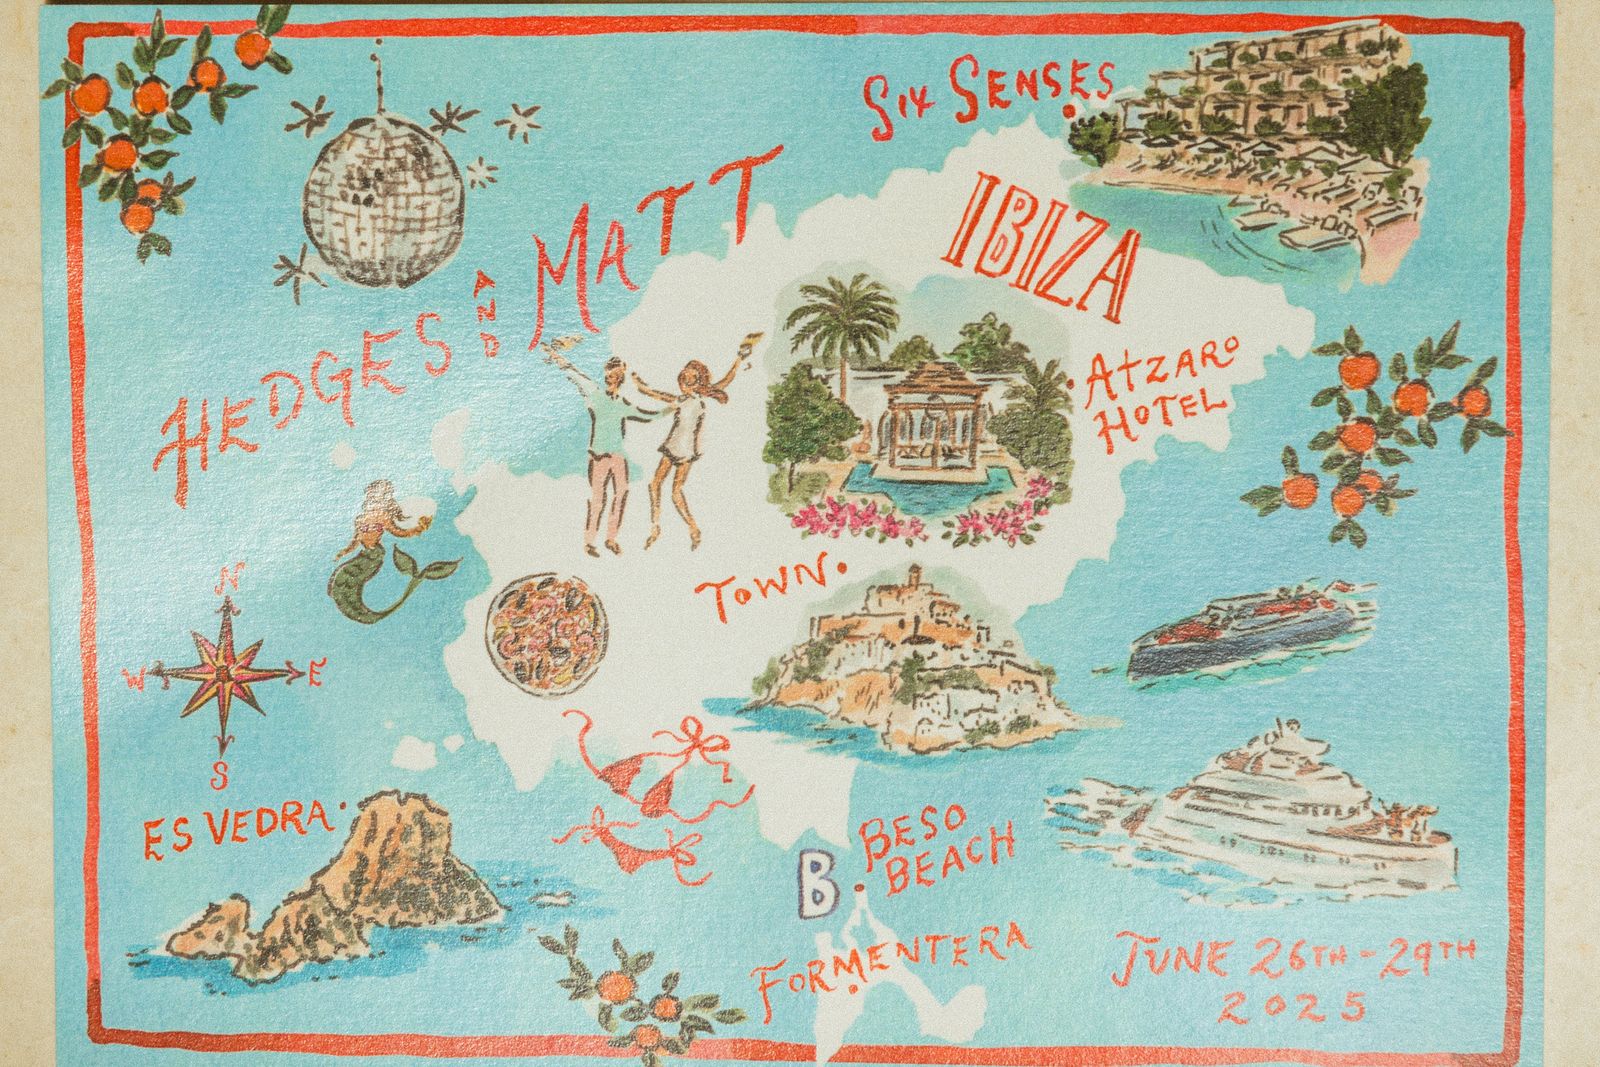 SIX SENSES
HEDGES AND MATT
IBIZA
ATZARO
HOTEL
TOWN
N
W E
S
ES VEDRA
B
BESO
BEACH
FORMENTERA
JUNE 26TH-29TH
2025